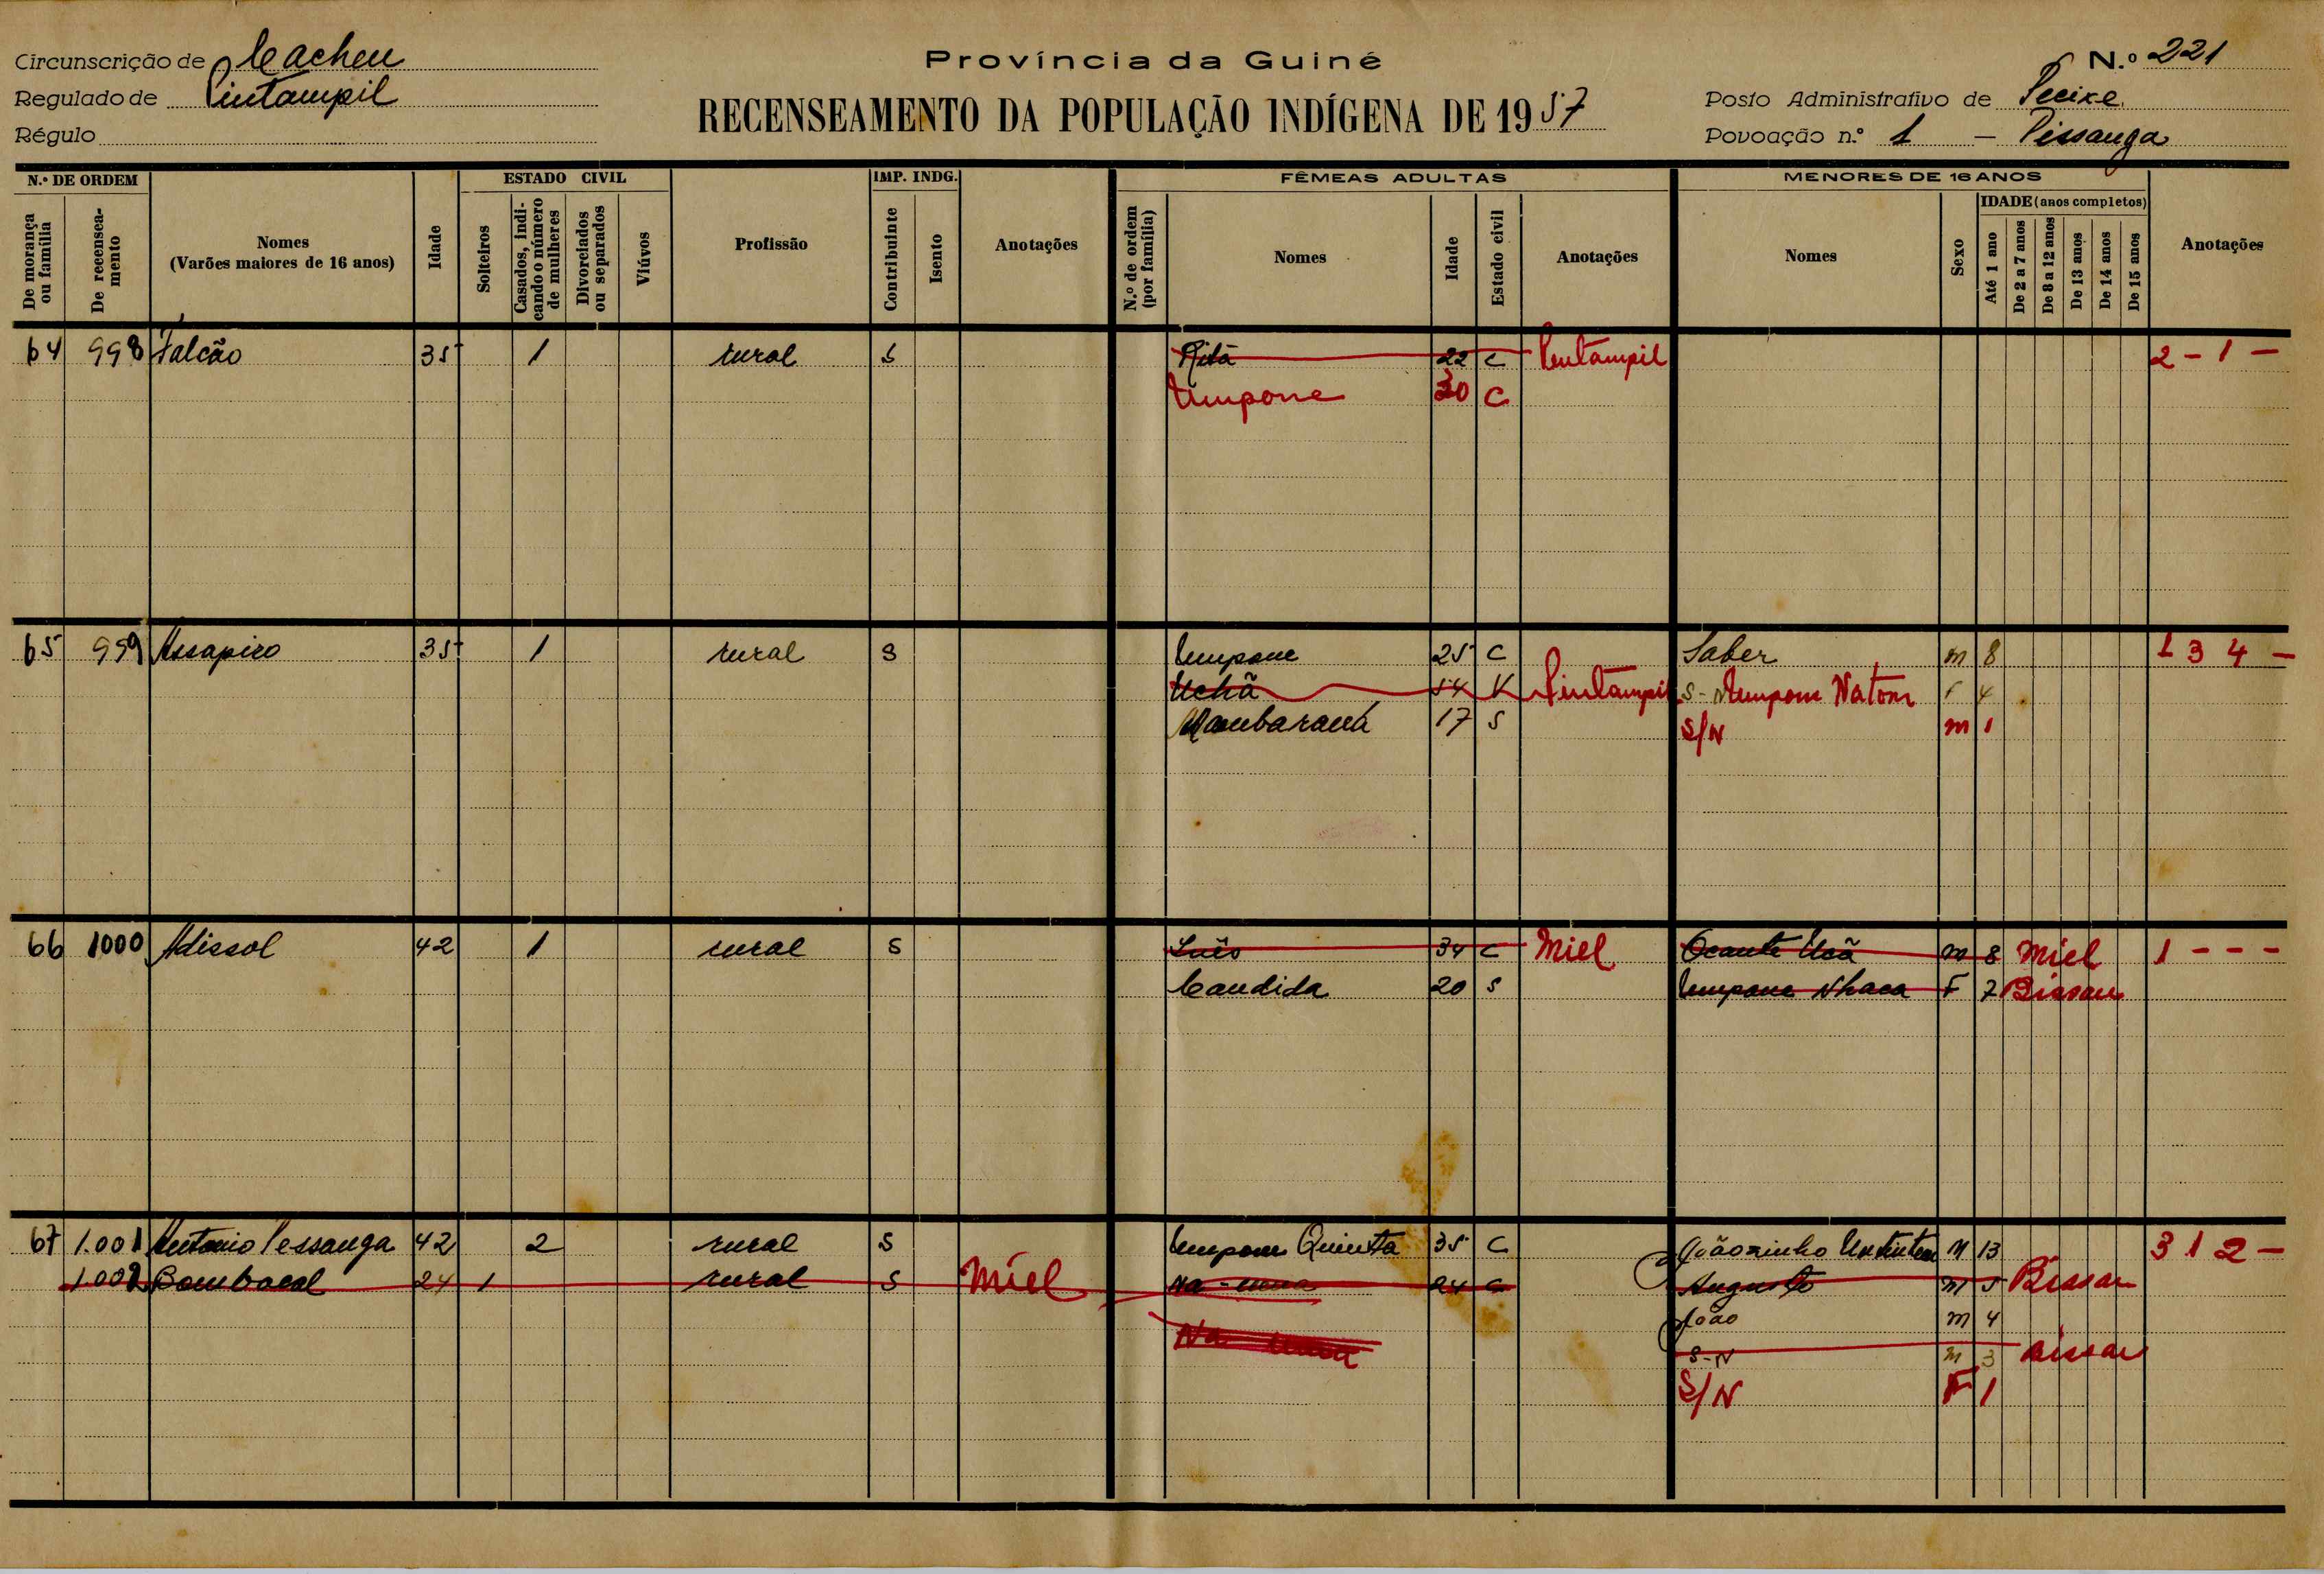 Circunscrição de Cacheu
Regulado de Pintampil
Régulo
Província da Guiné
RECENSEAMENTO DA POPULAÇÃO INDÍGENA DE 1957
N.º 221
Posto Administrativo de Pecixe
Povoação n.º 1 — Pissanga
N.º DE ORDEM
De morança ou família
De recenseamento
Nomes
(Varões maiores de 16 anos)
Idade
ESTADO CIVIL
Solteiros
Casados, indicando o número de mulheres
Divorciados ou separados
Viúvos
Profissão
IMP. INDG.
Contribuinte
Isento
Anotações
FÊMEAS ADULTAS
N.º de ordem (por família)
Nomes
Idade
Estado civil
Anotações
MENORES DE 16 ANOS
Nomes
Sexo
IDADE (anos completos)
Até 1 ano
De 2 a 7 anos
De 8 a 12 anos
De 13 anos
De 14 anos
De 15 anos
Anotações
64 998 Falcão 35 1 rural S Ritá 22 C Pintampil 2 - 1 -
Umpone 30 C
65 999 Assapiro 35 1 rural S Umpone 25 C Saber m 8 1 3 4 -
Uchã 54 V Pintampil S-N Umpone Natom F 4
17 S S/N m 1
66 1000 Adissol 42 1 rural S 34 C Miel Ocante Ucã m 8 Miel 1 - - -
Candida 20 S Umpone Nhaca F 7 Bissau
67 1.001 Antonio Pessanga 42 2 rural S Umpone Quinta 35 C Joãozinho M 13 3 1 2 -
1.002 Bombacal 24 1 rural S Miel Na-uma 24 C Augusto m 5 Bissau
Na João m 4
S-N m 3 Bissau
S/N F 1